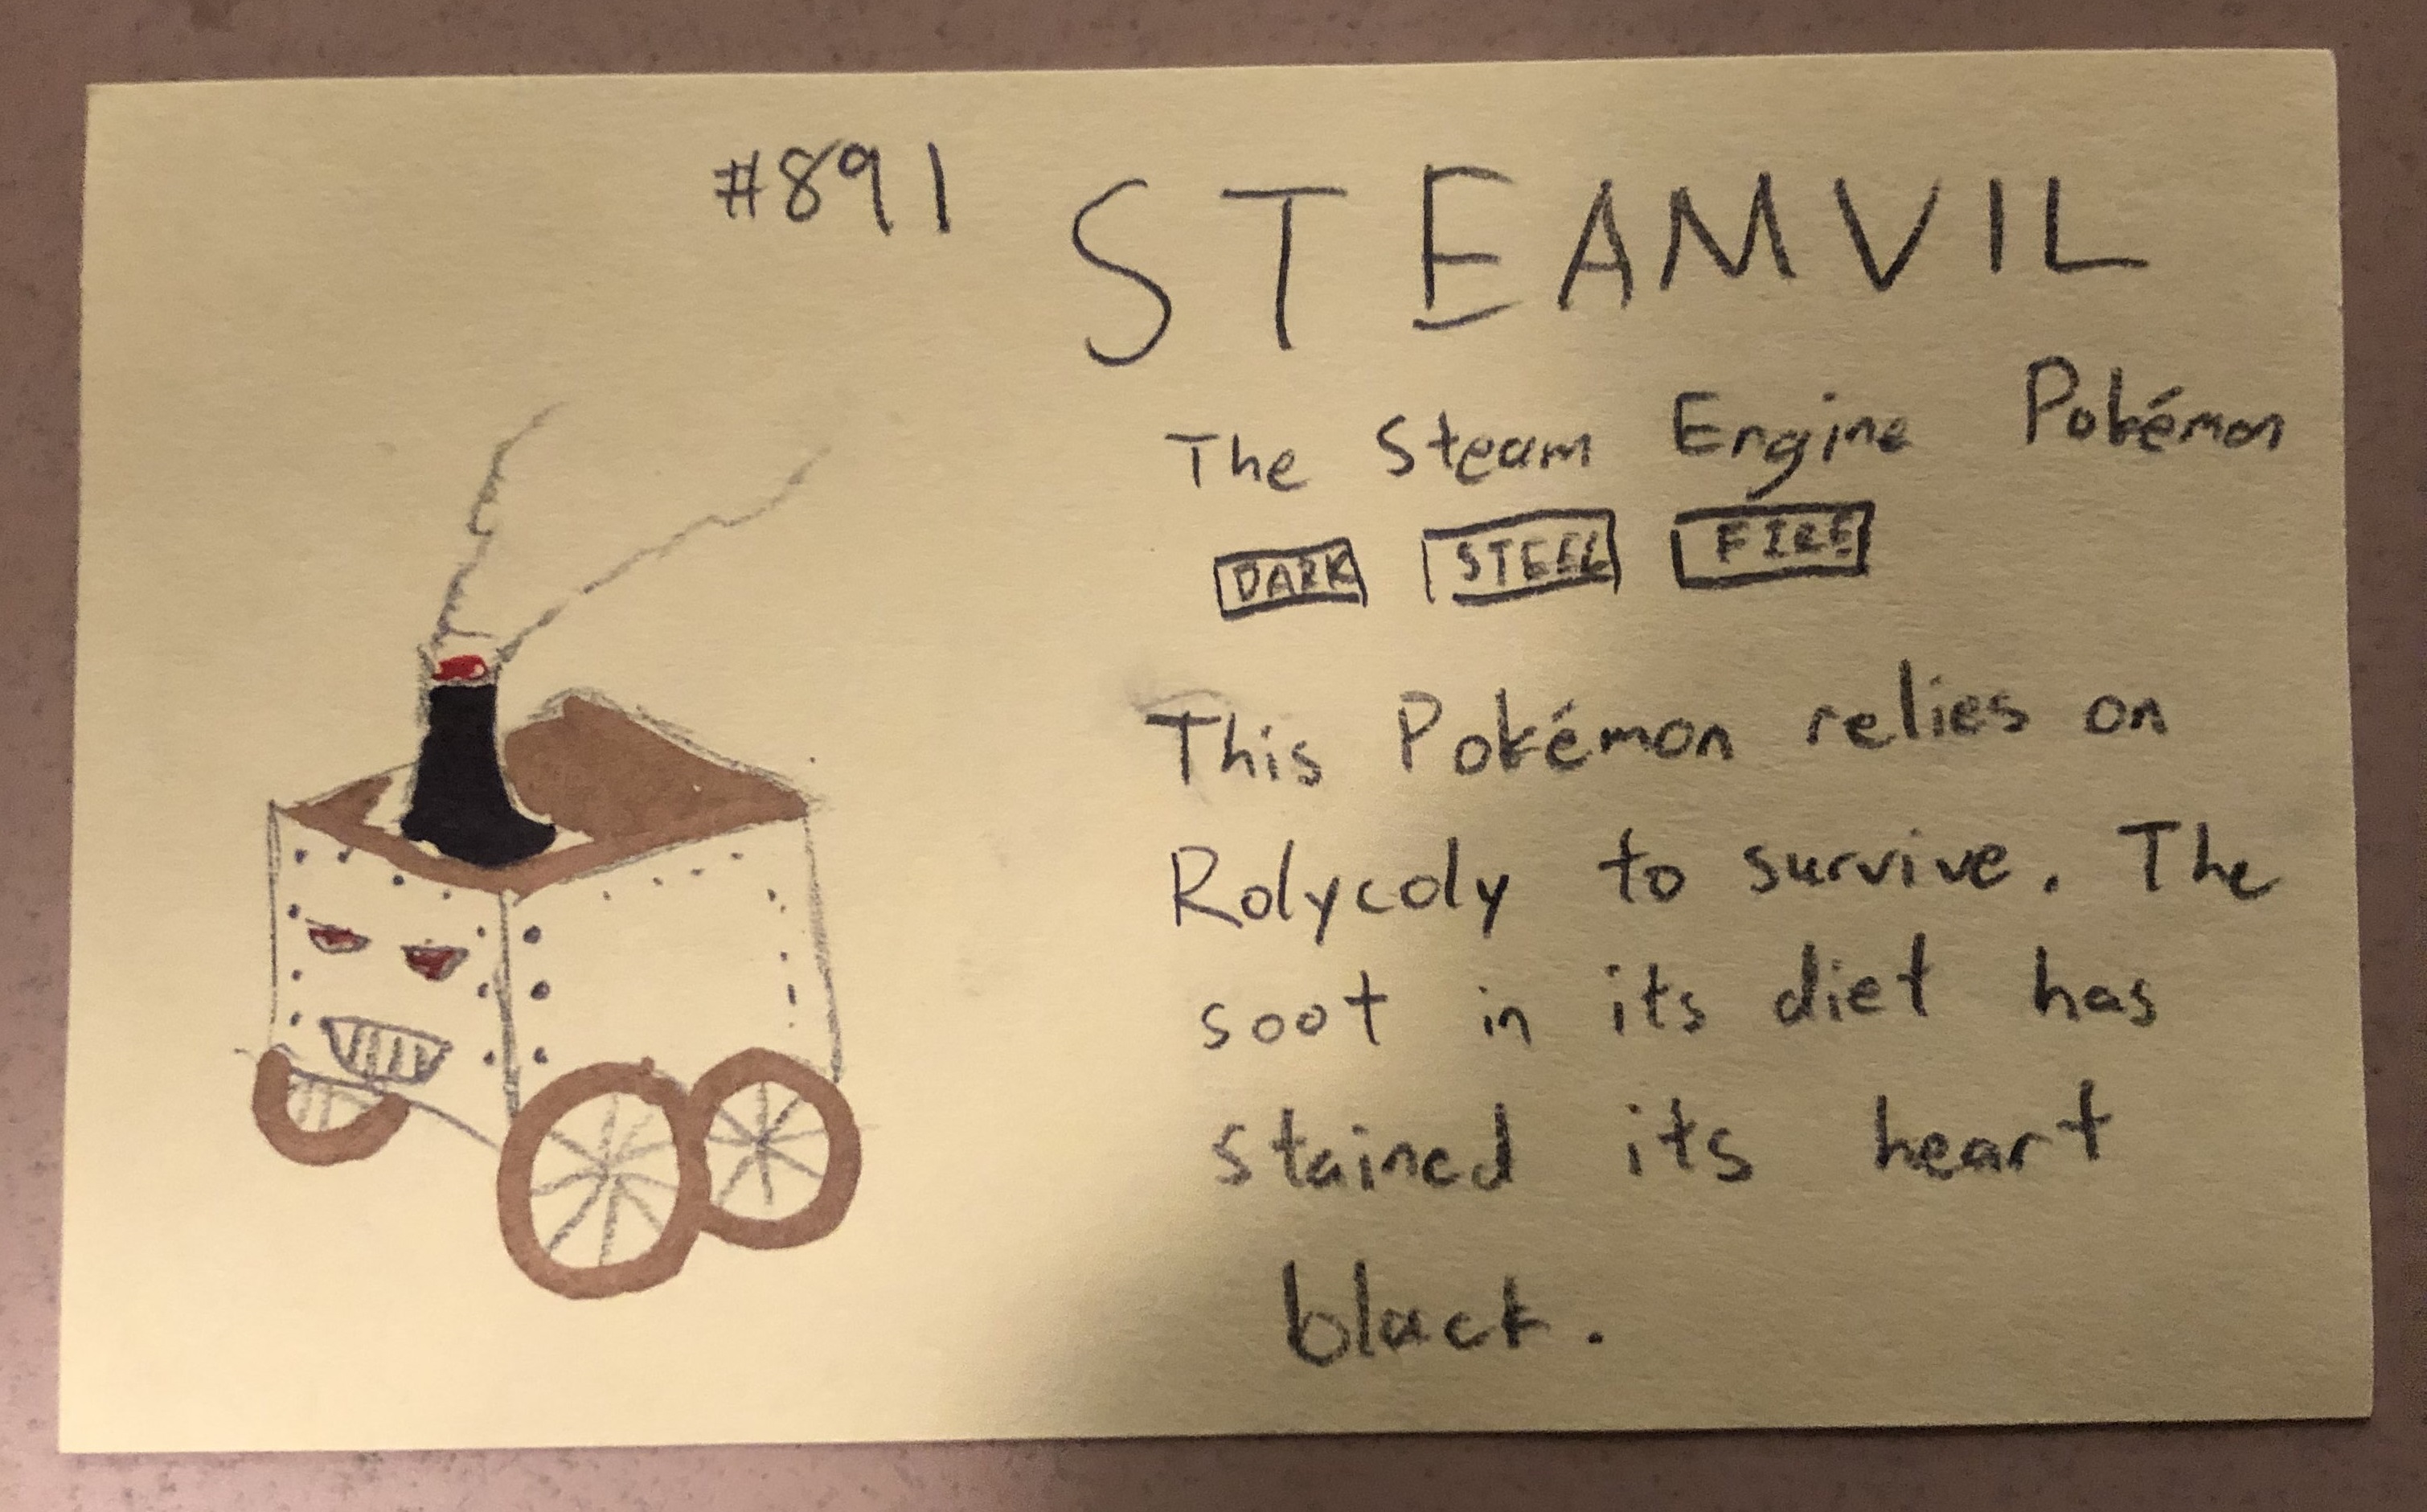 #891 STEAMVIL
The Steam Engine Pokémon
DARK STEEL FIRE
This Pokémon relies on
Rolycoly to survive. The
soot in its diet has
stained its heart
black.